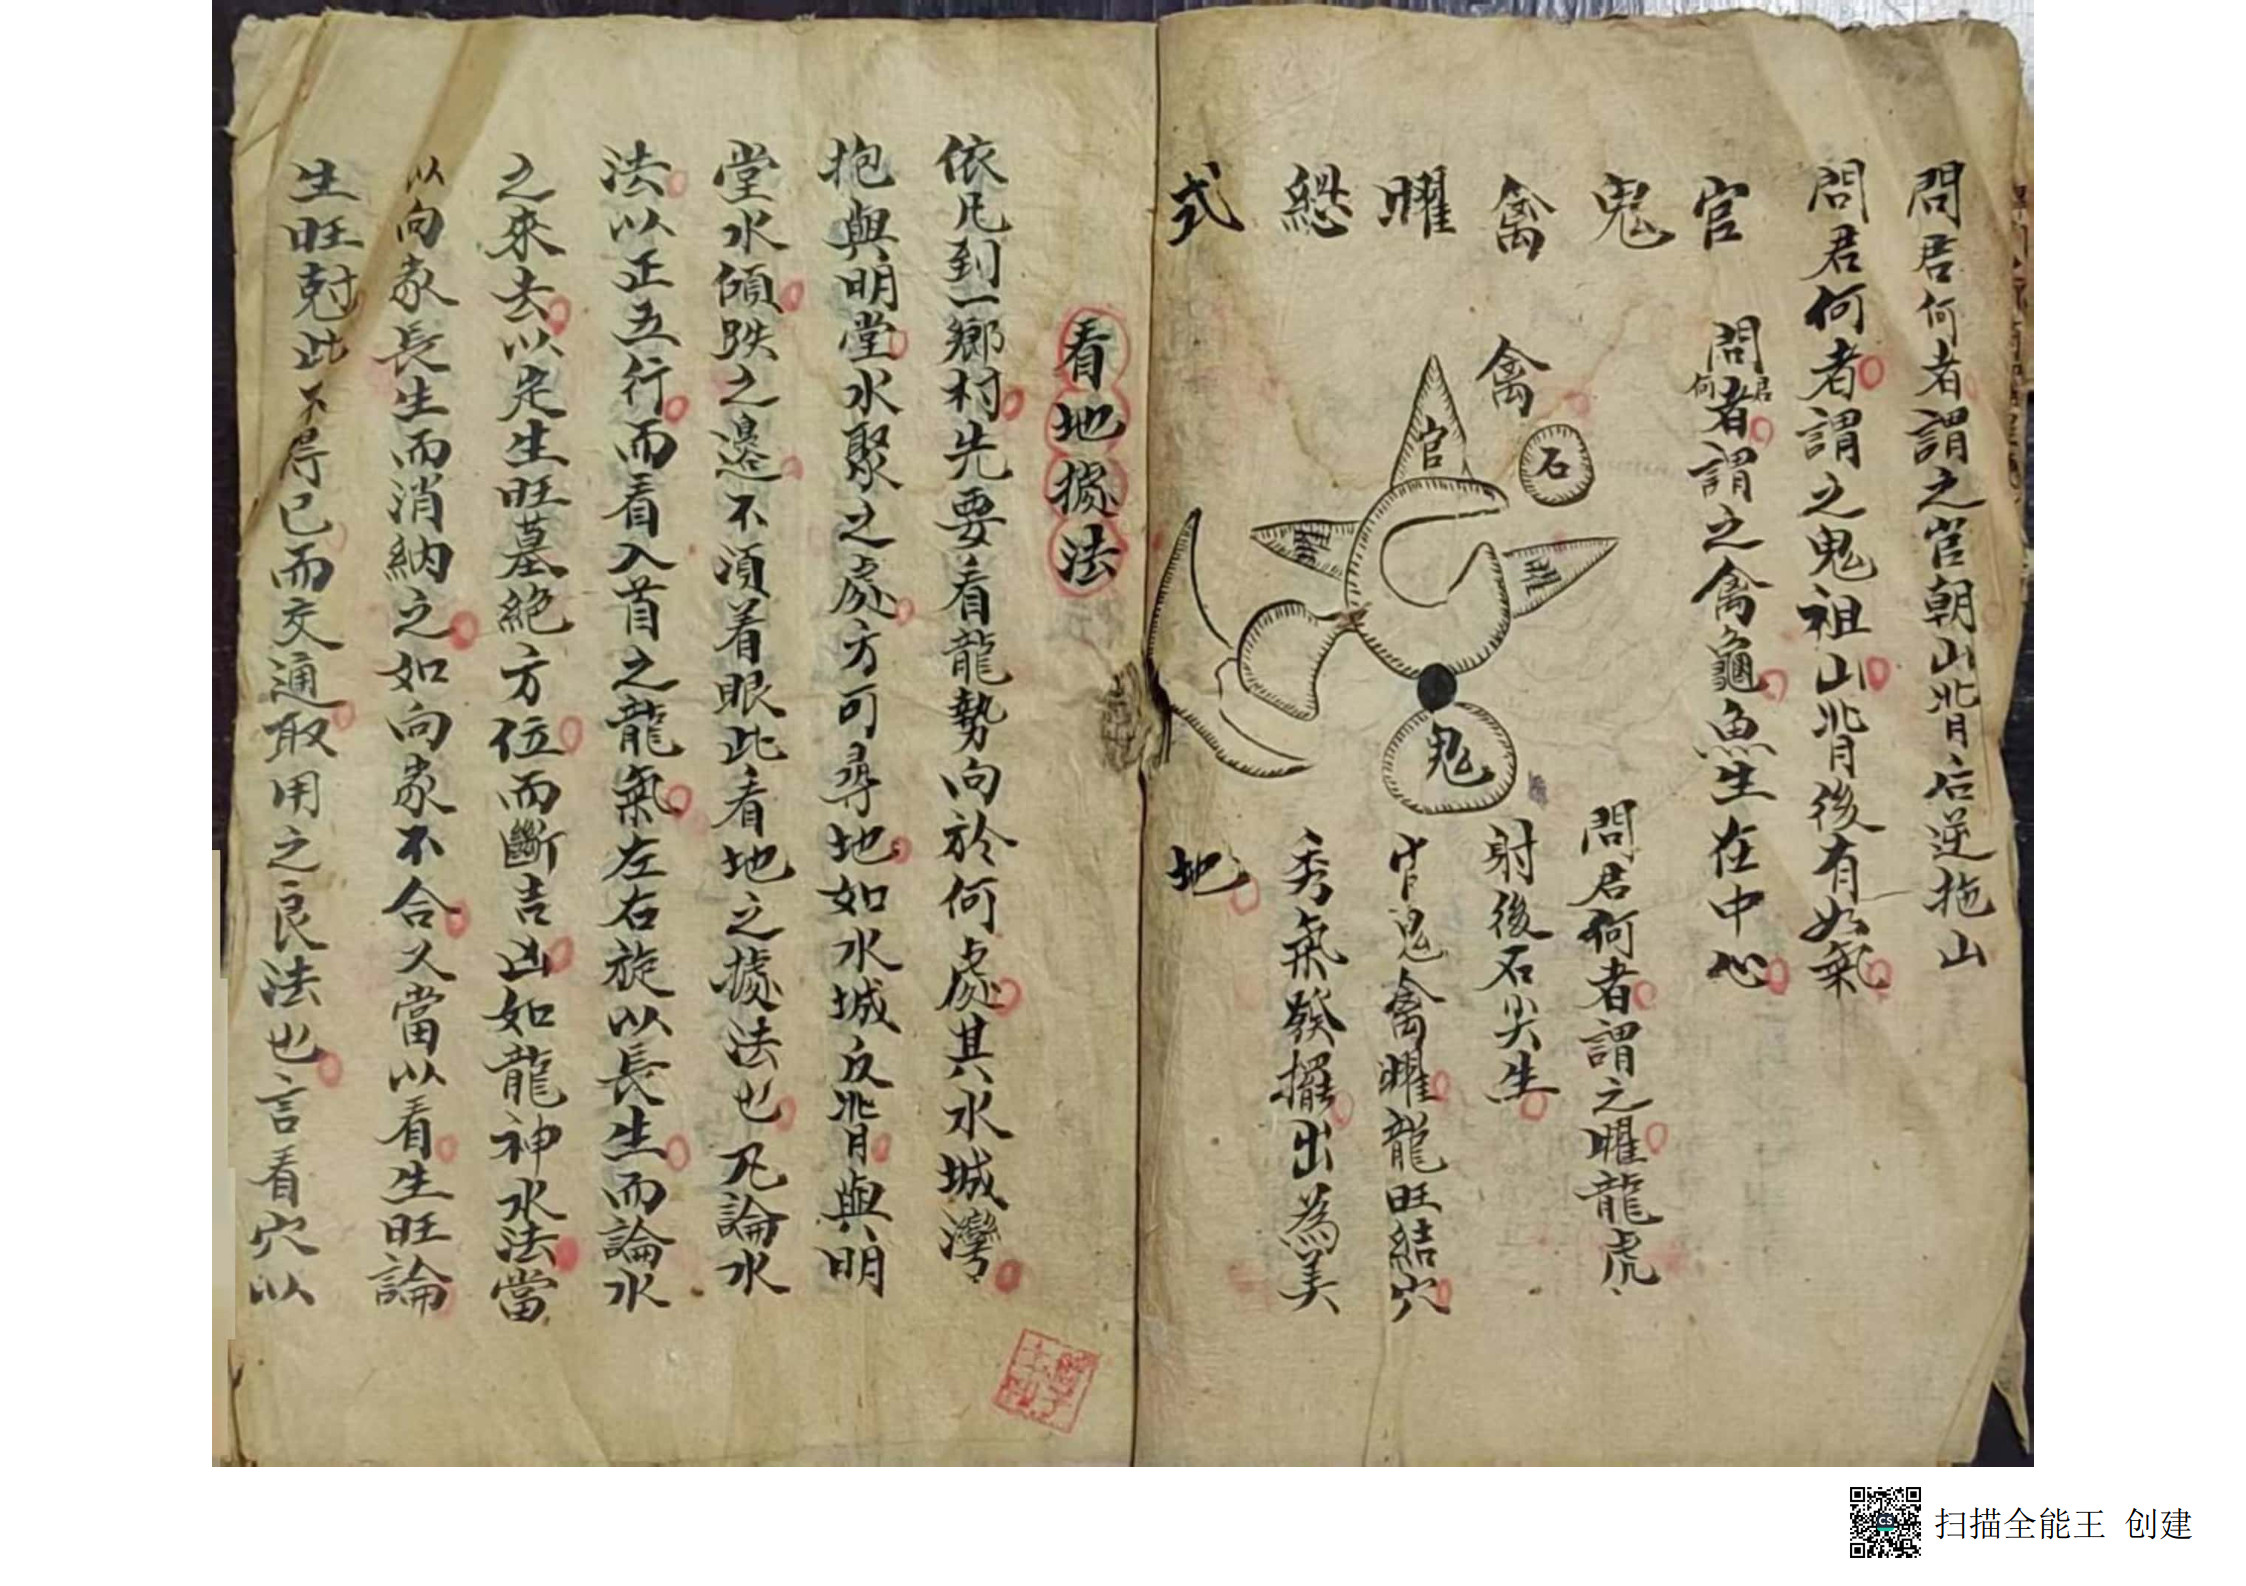 問君何者謂之官朝山背后逆拖山
問君何者謂之鬼祖山背後有如氣
官
問君何者謂之禽龜魚生在中心
鬼
禽
曜
總
式
禽
石
官
曜
曜
鬼
問君何者謂之曜龍虎
射後石尖生
官鬼禽曜龍旺結穴
秀氣發擺出為美
地
看地據法
依凡到一鄉村先要看龍勢向於何處其水城灣
抱與明堂水聚之處方可尋地如水城反背與明
堂水傾跌之邊不須着眼此看地之據法也凡論水
法以正五行而看入首之龍氣左右旋以長生而論水
之來去以定生旺墓絕方位而斷吉凶如龍神水法當
以向家長生而消納之如向家不合又當以看生旺論
生旺尅此不得已而交通取用之良法也言看穴以
扫描全能王 创建